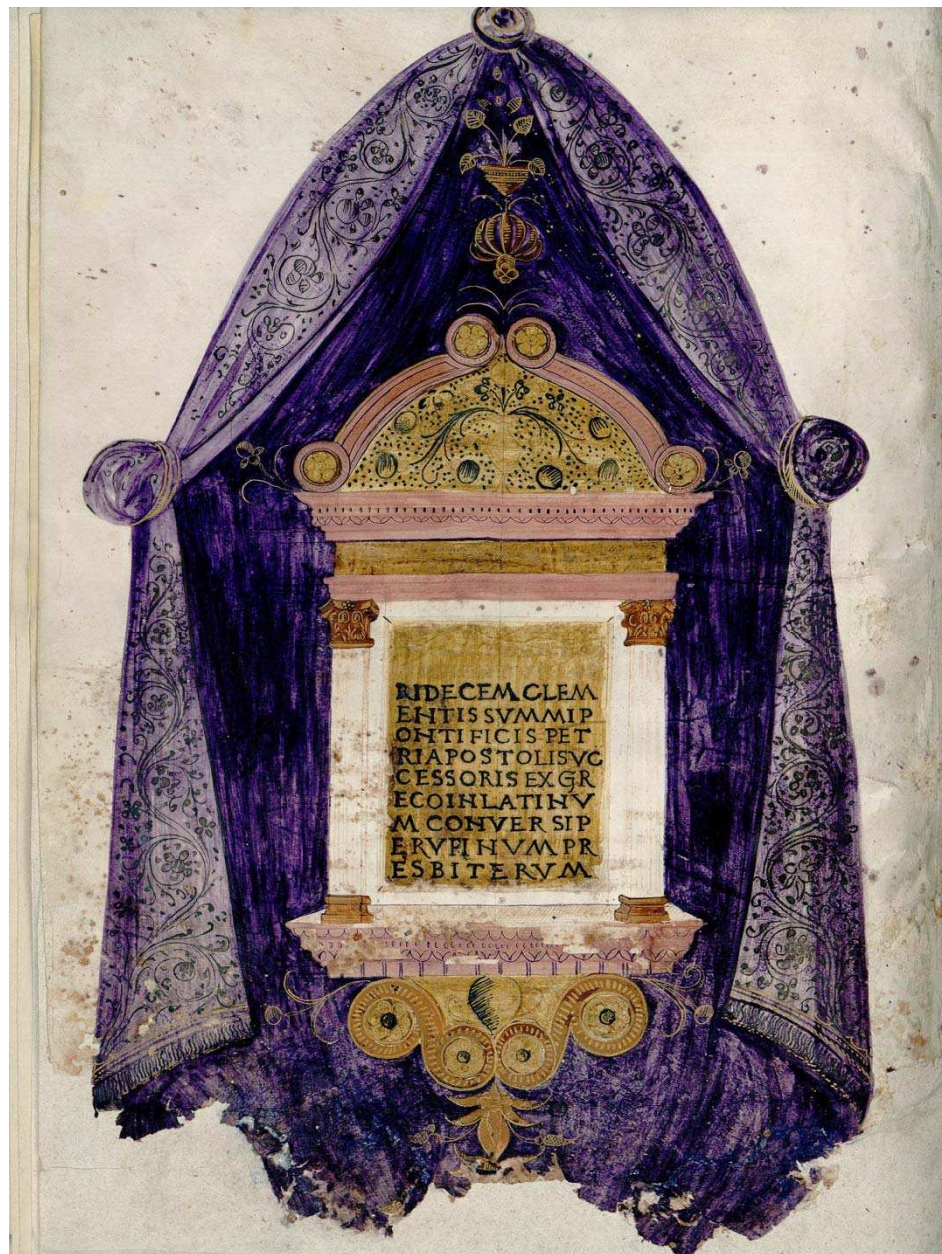 RI DECEM CLEM
ENTIS SVMMI P
ONTIFICIS PET
RI APOSTOLI SVC
CESSORIS EX GR
ECO IN LATINV
M CONVERSI P
ER VFINVM PR
ESBITERVM